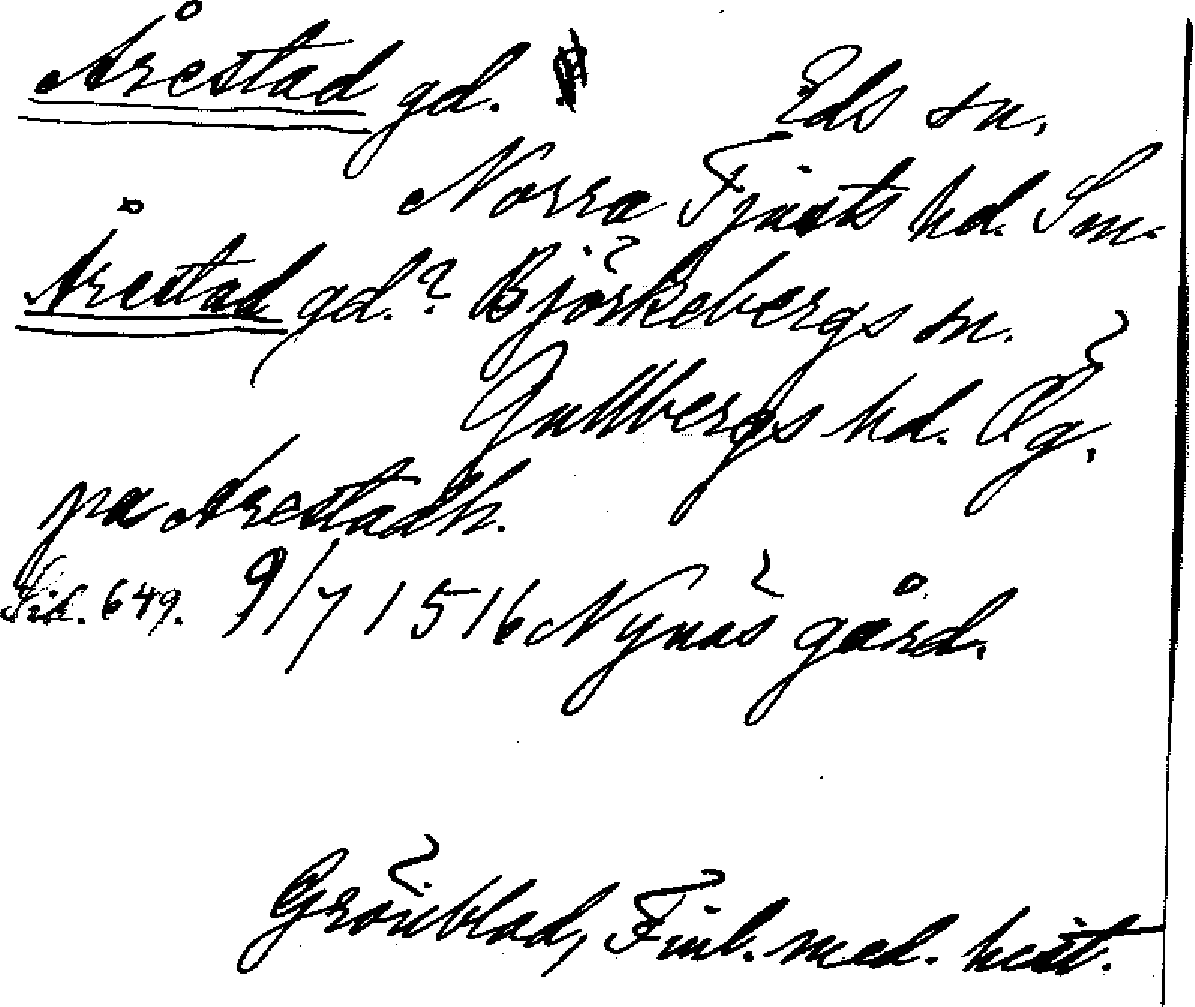 Årestad gd. Eds sn.
Norra Tjusts hd. Sm.
Årestad gd.? Björkebergs sn.
Gullbergs hd. Ög.
pa Arestadh.
Sid. 649. 9/7 1516 Nynäs gård.
Grönblad, Finl. med. hist.